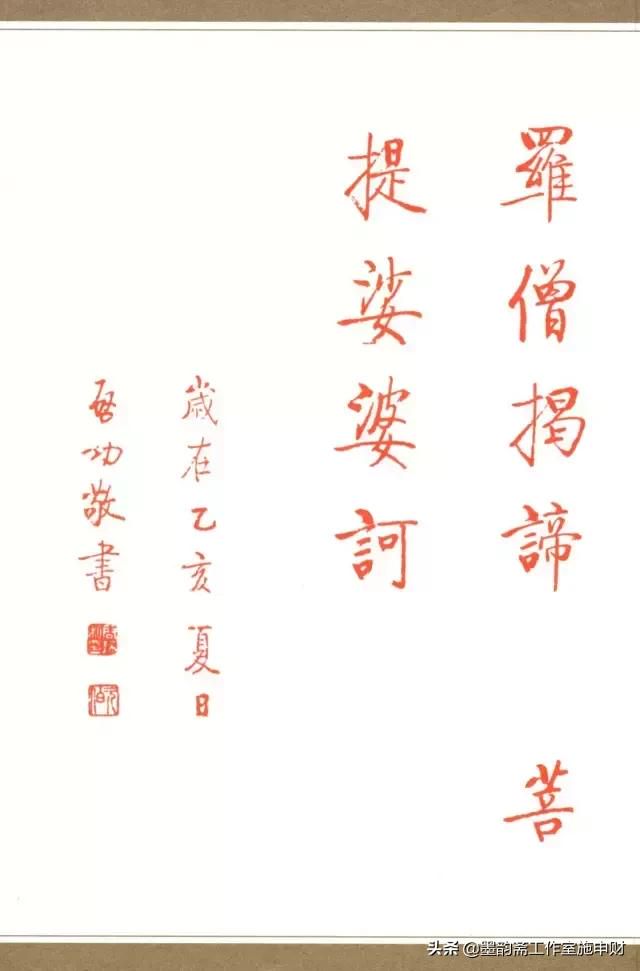 羅僧揭諦 菩
提娑婆訶
歲在乙亥夏日
啓功敬書
头条 @墨韵斋工作室施申财